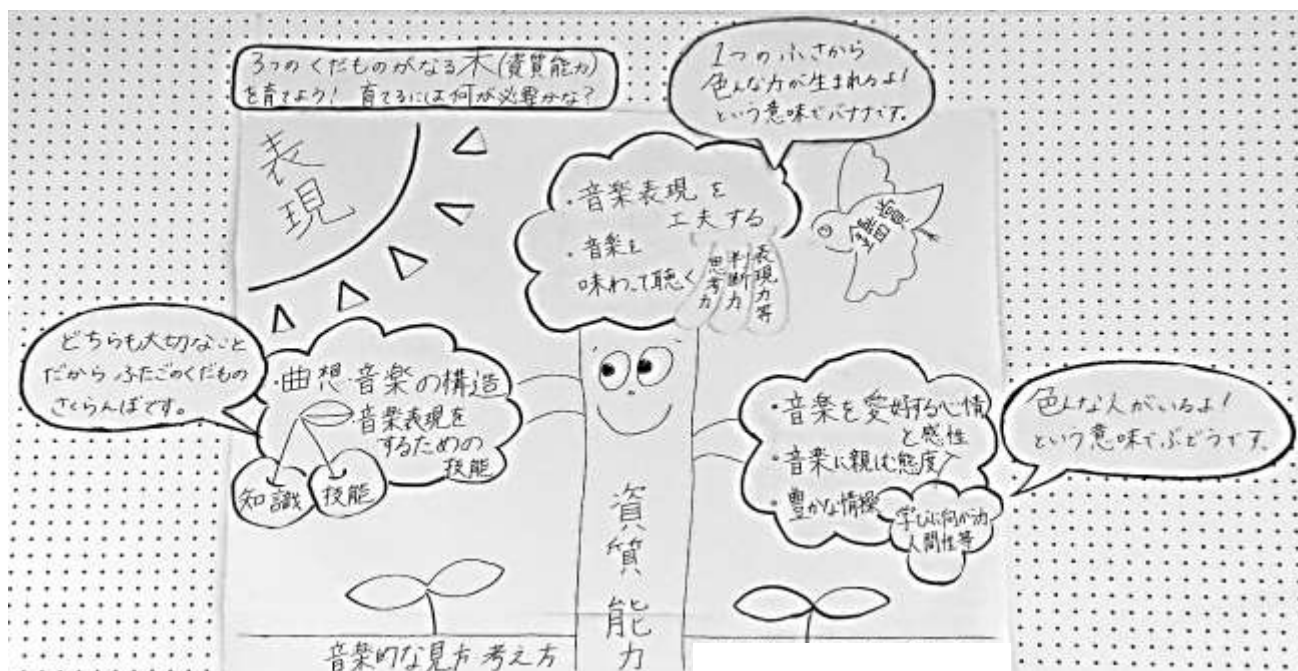 3つのくだものがなる木(資質能力)
を育てよう! 育てるには何が必要かな?
1つのふさから
色んな力が生まれるよ!
という意味でバナナです。
表現
・音楽表現を
工夫する
・音楽を
味わって聴く
思考力
判断力
表現力等
鑑賞
どちらも大切なこと
だから ふたごのくだもの
さくらんぼです。
・曲想・音楽の構造
・音楽表現を
するための
技能
知識
技能
・音楽を愛好する心情
と感性
・音楽に親しむ態度
・豊かな情操
学びに向かう力
人間性等
色んな人がいるよ!
という意味でぶどうです。
資質能力
音楽的な見方 考え方